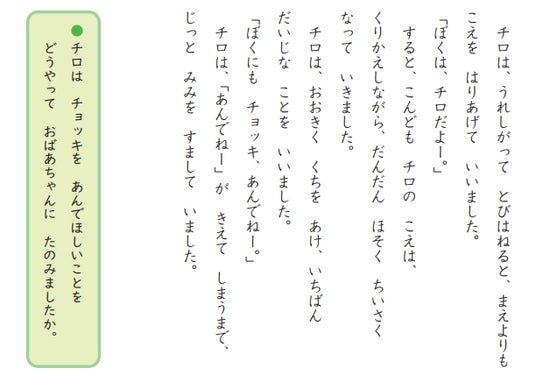 チロは、うれしがって　とびはねると、まえよりも
こえを　はりあげて　いいました。
「ぼくは、チロだよー。」
すると、こんども　チロの　こえは、
くりかえしながら、だんだん　ほそく　ちいさく
なって　いきました。
チロは、おおきく　くちを　あけ、いちばん
だいじな　ことを　いいました。
「ぼくにも　チョッキ、あんでねー。」
チロは、「あんでねー」が　きえて　しまうまで、
じっと　みみを　すまして　いました。
●チロは　チョッキを　あんでほしいことを
どうやって　おばあちゃんに　たのみましたか。